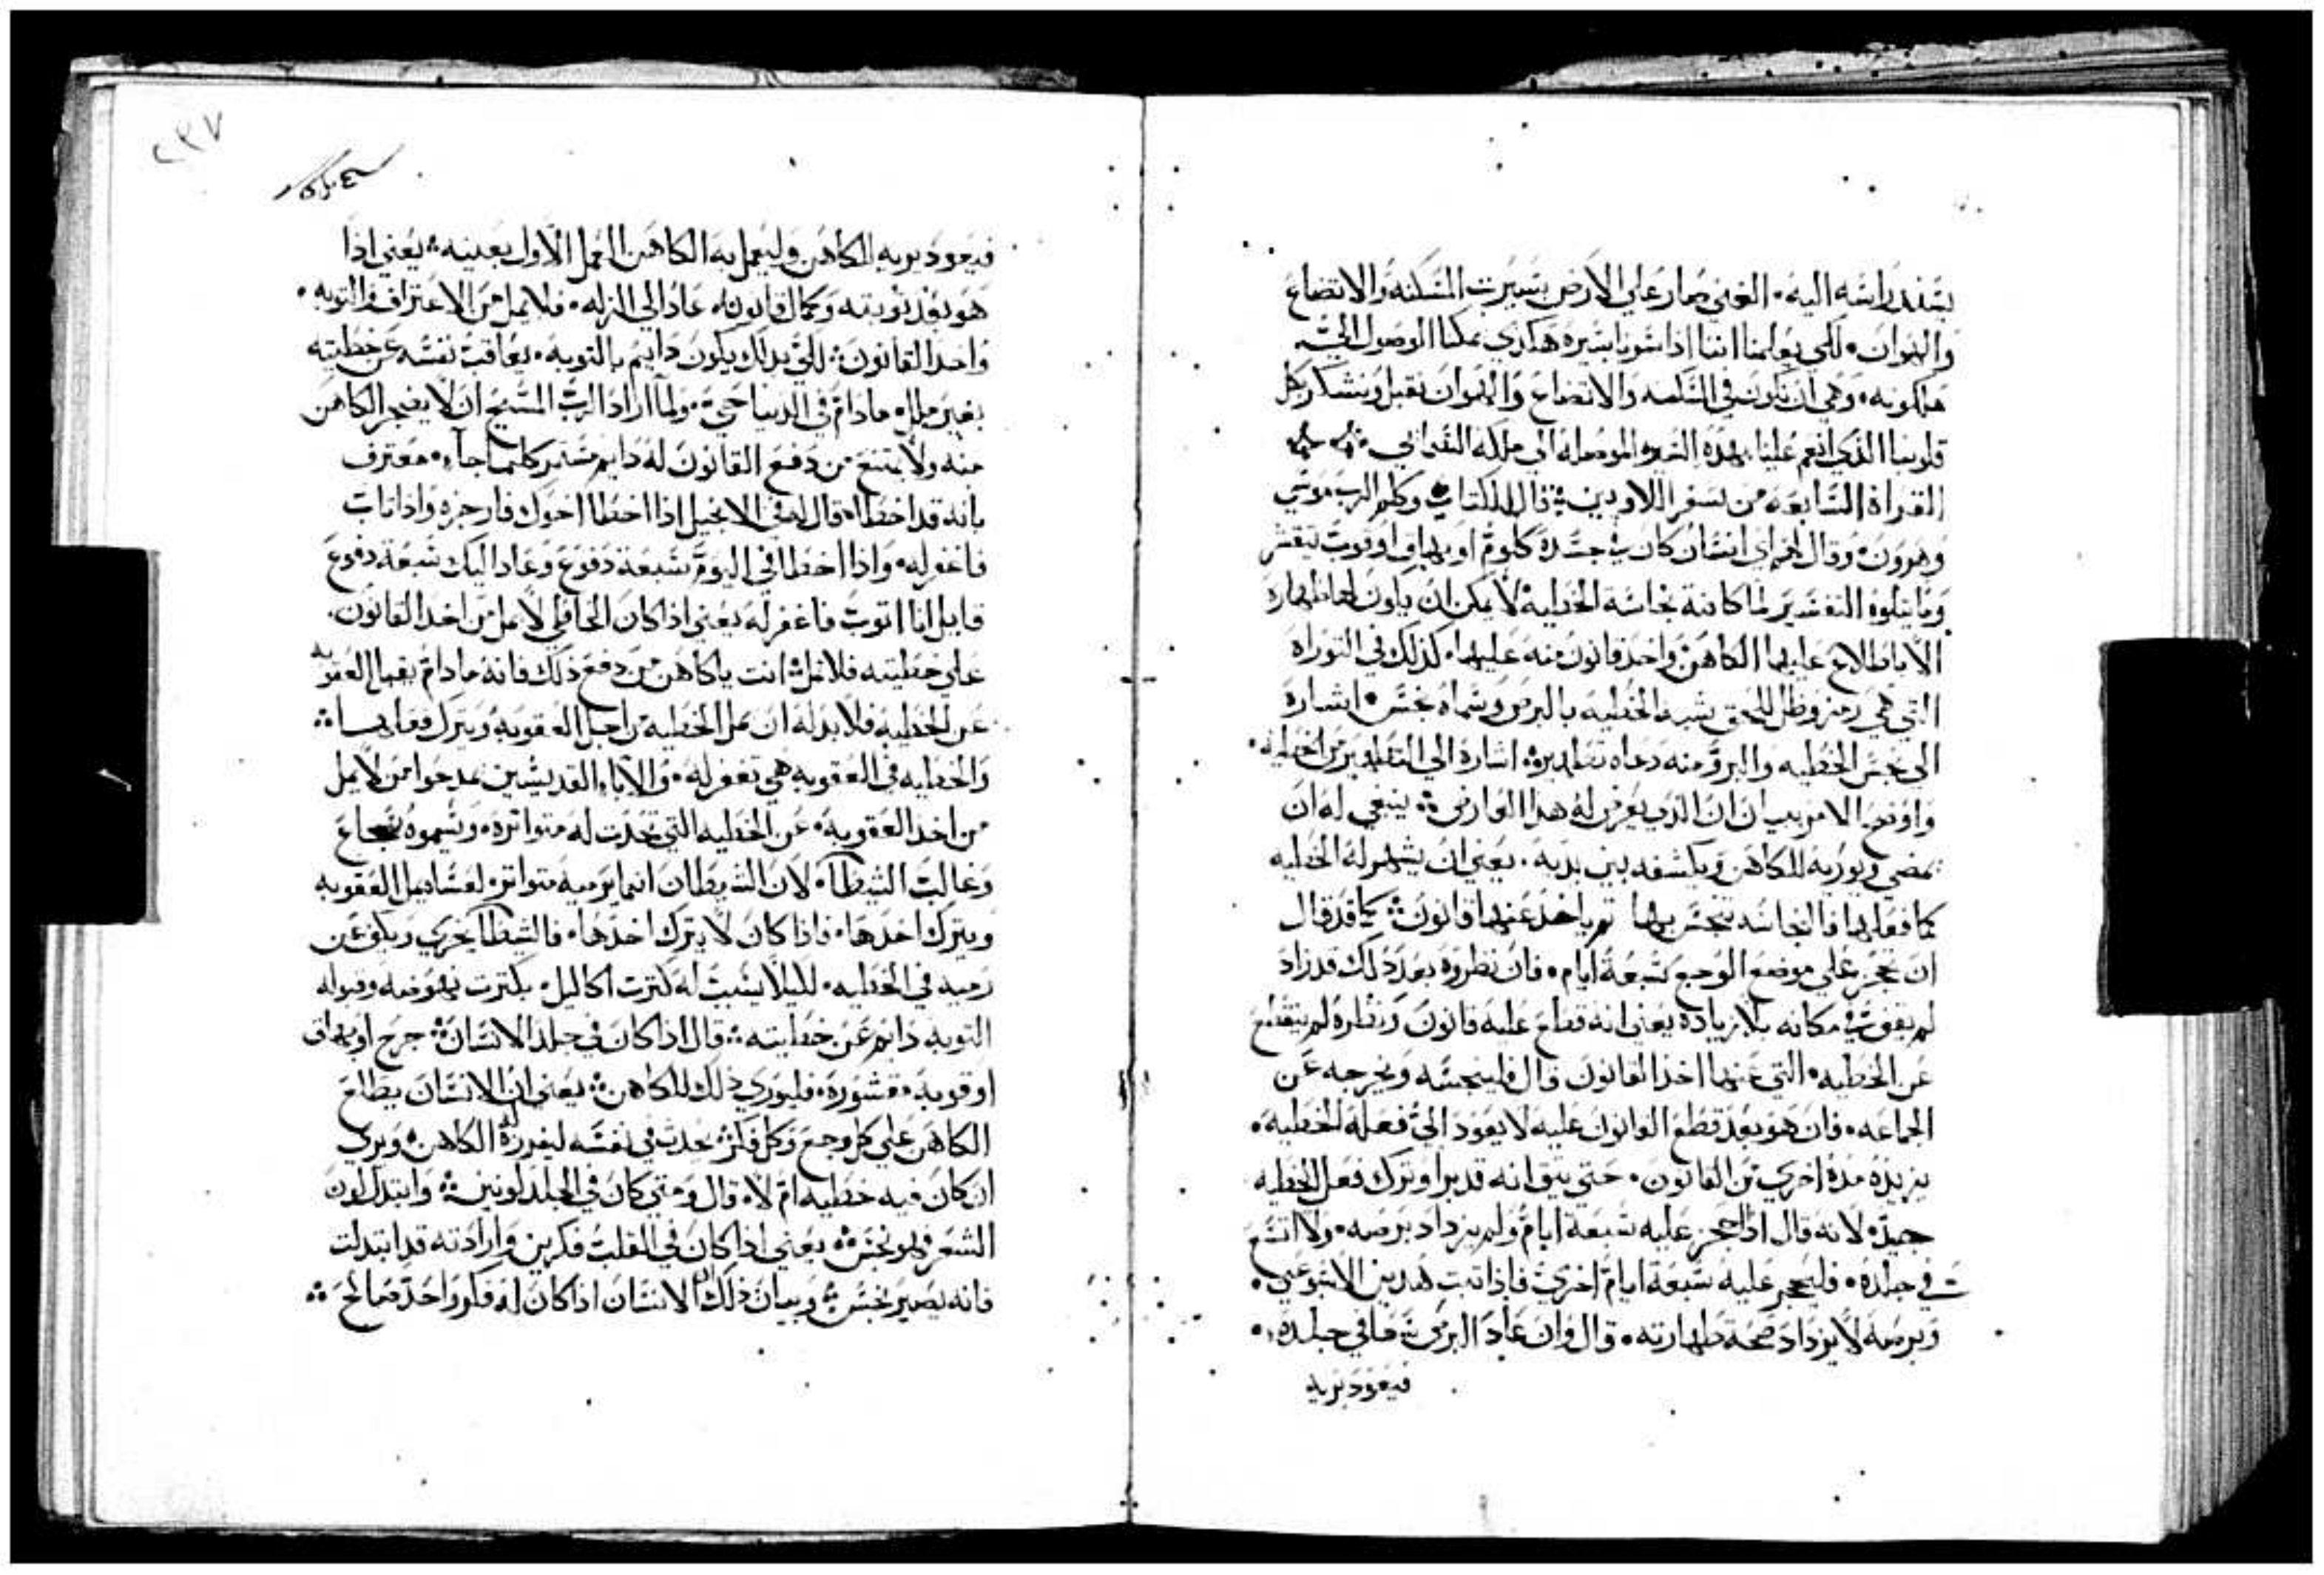 يسند راسه اليه. الغني صار علي الارض بسيرت المسكنه والاتضاع
والهوان. لكي يعلمنا اننا اذا سرنا سيره هكذي يمكنا الوصول الي
ملكوته. وهي ان نكون في المسكنه والاتضاع والهوان نقبل ونشكر بكل
قلوبنا الذي انعم علينا بهذه السيره الموصله الي ملكه السماني
القراة السابعه من سفر اللاويين قال الكتاب وكلم الرب موسي
وهرون وقال لهم اي انسان كان في جسده كلوم او بهاق او قوب تنقشر
وما يتلوه التفسير لما كانت نجاسة الخطيه لا يمكن ان يكون لها طهاره
الا باطلاع عليها الكاهن واخذ قانون منه عليها. كذلك في التوراه
التي هي رمز وظل للحق شبه الخطيه بالبرص وسماه نجس. اشاره
الي نجس الخطيه والبرو منه دعاه تطهيره. اشاره الي التطهير من الخطيه.
واوضح الامر ببيان ان الذي يعرض له هذا العارض ينبغي له ان
يمضي ويوريه للكاهن ويكشفه بين يديه. يعني ان يشهر له الخطيه
كما فعلها فالنجاسه تنجس بها ثم ياخذ عنها قانون كما قد قال
ان يحجر علي موضع الوجع سبعة ايام. فان نظروه بعد ذلك قد زاد
لم يقف في مكانه بلا زياده يعني انه قطع عليه قانون ونظره لم ينقطع
عن الخطيه. التي عنها اخذ القانون قال فلينجسه ويخرجه عن
الجماعه. فان هو بعد قطع القانون عليه لا يعود الي فعله للخطيه.
يزيده مدة اخري من القانون. حتي يثق انه قد برا وترك فعل الخطيه
جيدًا. لانه قال اذا حجز عليه سبعة ايام ولم يزداد برصه. ولا اتسع
في جلده. فليحجر عليه سبعة ايام اخري فاذا تبت هدين الاسبوعين.
وبرصه لا يزداد صحة طهارته. قال وان عاد البرص سعا في جلده.
فيعود يريه
٢٣٧
فيعود يريه للكاهن وليعمل به الكاهن العمل الاول بعينه يعني اذا
هو بعد توبته وكمال قانونه عاد الي الزله. فلا يمل من الاعتراف والتوبه.
واخذ القانون لكي بذلك يكون دايم بالتوبه. يعاقب نفسه عن خطيته
بغير ملل. ما دام في الدنيا حي. ولما اراد الرب المسيح ان لا يضجر الكاهن
منه ولا يمتنع من دفع القانون له دايم مستمر كلما جآء. معترف
بانه قد اخطا. قال له في الانجيل اذا اخطا اخوك فارجزه واذا تاب
فاغفر له. واذا اخطا في اليوم سبعة دفوع وعاد اليك سبعة دفوع
قايل انا اتوب فاغفر له يعني اذا كان الخاطي لا يمل من اخذ القانون.
علي خطيته فلا تمل انت يا كاهن من دفع ذلك فانه ما دام يقبل العقوبه
عن الخطيه فلا بد له ان يمل الخطيه من اجل العقوبه ويترك فعلها
والخطايه في العقوبه هي تغفر له. والاباء القديسين مدحوا من لا يمل
من اخذ العقوبه. عن الخطيه التي تحدث له متواتره. وسموه شجاع
وغالب الشيطان. لان الشيطان انما يرميه متواتر. لعسا يمل العقوبه
ويترك اخذها. فاذا كان لا يترك اخذها. فالشيطان يخزي ويكف عن
رميه في الخطيه. لليلا يسبب له كترت اكاليل. بكترت نهوضه وقبوله
التوبه دايم عن خطايته قال اذا كان في جلد الانسان جرح او بهاق
او قوبه مقشوره. فليوري ذلك للكاهن يعني ان الانسان يطلع
الكاهن علي كل وجع وكل فكر يحدث في نفسه ليفرزه له الكاهن. ويري
ان كان فيه خطيه ام لا. قال ومتي كان في الجلد لونين وابتدل لون
الشعر فهو نجس يعني اذا كان في القلب فكرين وارادته قد ابتدلت
فانه يصير نجس وبيان ذلك ان الانسان اذا كان له فكر واحد صالح